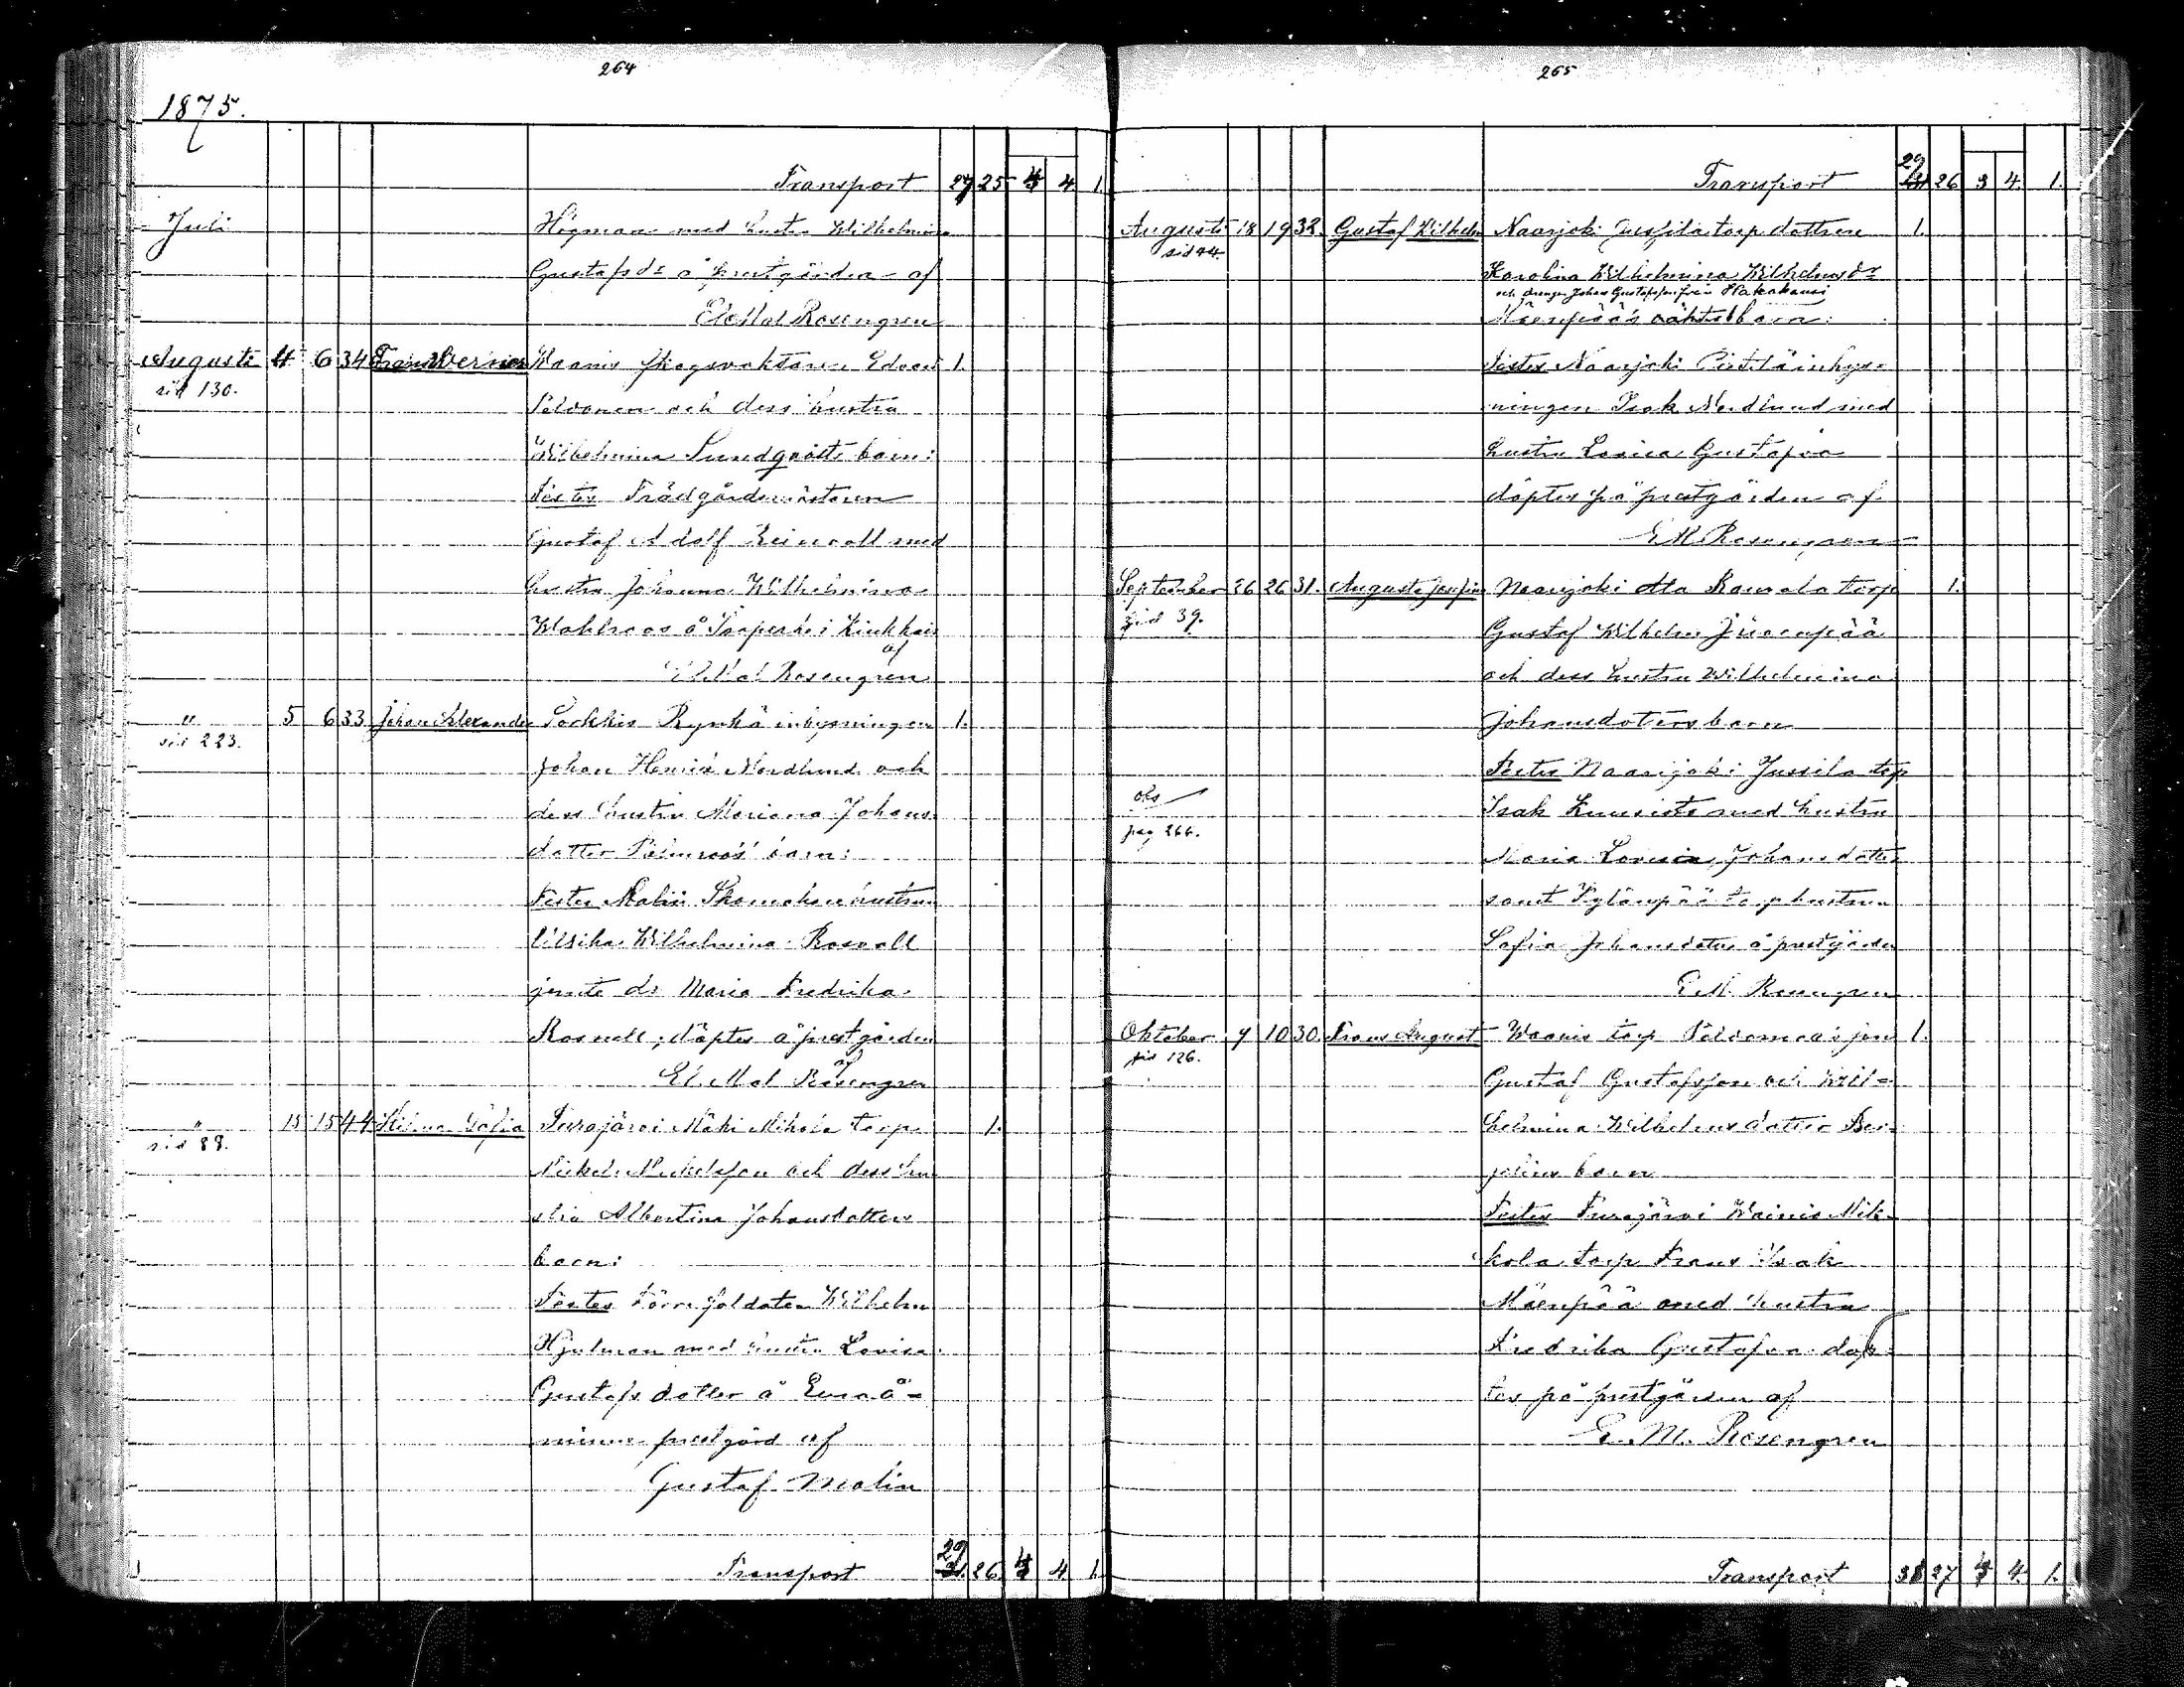 264
1875.
Transport 27 25 4 4 1.
Juli Högman med hustru Wilhelmina
Gustafsdr å prestgården af
El. Mal. Rosengren
Augusti 4 6 34 Frans Verner Waanis skogsvaktaren Edvard 1.
sid 130. Selvonen och dess hustru
Wilhelmina Sundqvists barn:
Testes Trädgårdsmästaren
Gustaf Adolf Reinvall med
hustru Johanna Wilhelmina
Wahlroos å i Kiukkais
af
El. Mal. Rosengren
" 5 6 33 Johan Alexander Sorkkis Rynkä inhysningen 1.
sid 223. Johan Henrik Nordlund och
dess hustru Mariana Johans
dotter Palmroos' barn:
Testes skomakarehustrun
Ulrika Wilhelmina Rosvall
jemte dr Maria Fredrika
Rosvall; döptes å prestgården
af
El. Mal. Rosengren
" 15 15 44 Hilma Sofia Turajärvi Mäki Mikola torp. 1.
sid 88. Mickel Mickelsson och dess hu
stru Albertina Johansdotters
barn:
Testes Förre soldaten Wilhelm
Hjulman med hustru Lovisa
Gustafsdotter å Euraå-
minne prestgård af
Gustaf Malin
29
Transport 31. 26 4 4 1.
265
29
Transport 31 26 3 4. 1.
Augusti 18 19 32. Gustaf Wilhelm Naarjoki Jussila torp dottren 1.
sid 44. Karolina Wilhelmina Wilhelmsdr
och drengen Johan Gustafsson från Hakakausi
Mäenpää's oäkta barn:
Testes Naarjoki inhys-
ningen Isak Nordlund med
hustru Lovisa Gustafva
döptes på prestgården af
E M Rosengren
September 26 26 31. Augusta Josefina Naarjoki Ala Raurala torp 1.
sid 39. Gustaf Wilhelm
och dess hustru Wilhelmina
Johansdotters barn
Testes Naarijoki Jussila torp
obs Isak Kuusisto med hustru
pag 266. Maria Lovisa Johansdotter
samt torphustrun
Sofia Johansdotter å prestgården
E. M. Rosengren
Oktober 9 10 30. Frans August Waanis torp son 1.
sid 126. Gustaf Gustafsson och Wil-
helmina Wilhelmsdotter Ber-
gelins barn
Testes Turajärvi Wainis Mik-
kola torp Frans Isak
Mäenpää med hustru
Fredrika Gustafva döp
tes på prestgården af
E. M. Rosengren
Transport 31 27 4 4. 1.